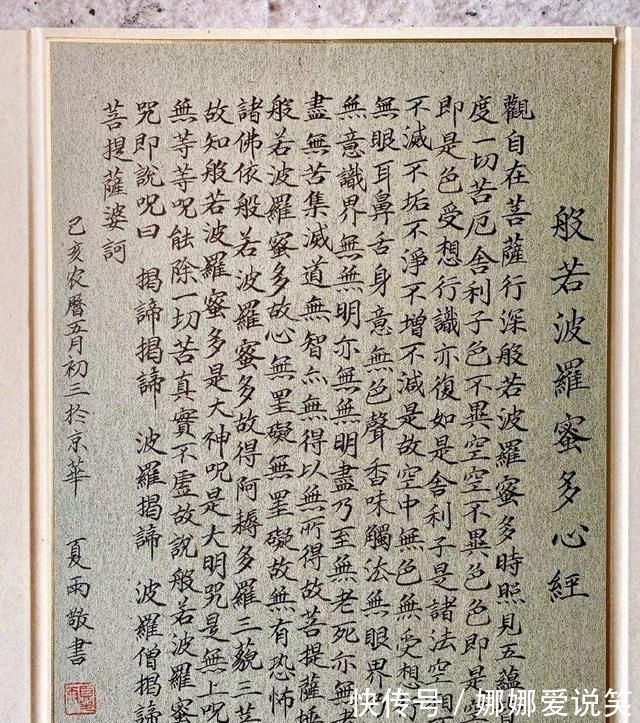 般若波羅蜜多心經
觀自在菩薩行深般若波羅蜜多時照見五蘊
度一切苦厄舍利子色不異空空不異色色即是
即是色受想行識亦復如是舍利子是諸法空
不滅不垢不淨不增不減是故空中無色無受想
無眼耳鼻舌身意無色聲香味觸法無眼界
無意識界無無明亦無無明盡乃至無老死亦無
盡無苦集滅道無智亦無得以無所得故菩提薩
般若波羅蜜多故心無罣礙無罣礙故無有恐怖
諸佛依般若波羅蜜多故得阿耨多羅三藐三
故知般若波羅蜜多是大神呪是大明呪是無上呪
無等等呪能除一切苦真實不虛故說般若波羅蜜
咒即說呪曰 揭諦揭諦 波羅揭諦 波羅僧揭諦
菩提薩婆訶
己亥农曆五月初三於京華 夏雨敬書
快传号/娜娜爱说笑